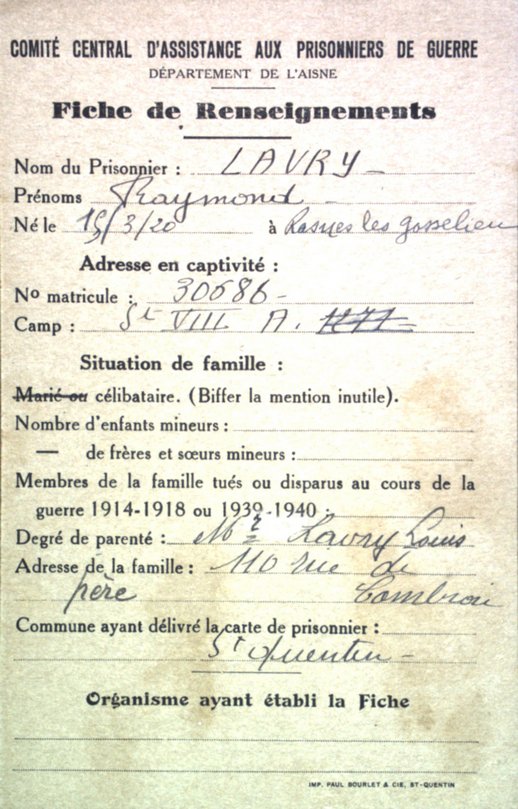 COMITÉ CENTRAL D'ASSISTANCE AUX PRISONNIERS DE GUERRE
DÉPARTEMENT DE L'AISNE
Fiche de Renseignements
Nom du Prisonnier : LAVRY
Prénoms Raymond
Né le 15/3/20 à les gosselieu
Adresse en captivité :
No matricule : 30686
Camp : St VIII A.
Situation de famille :
Marié ou célibataire. (Biffer la mention inutile).
Nombre d'enfants mineurs :
— de frères et sœurs mineurs :
Membres de la famille tués ou disparus au cours de la
guerre 1914-1918 ou 1939-1940 :
Degré de parenté : Mr Lavry Louis
Adresse de la famille : 110 rue de
père Cambrai
Commune ayant délivré la carte de prisonnier :
St Quentin
Organisme ayant établi la Fiche
IMP. PAUL BOURLET & CIE, ST-QUENTIN